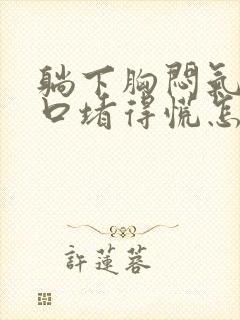 躺下胸悶氣
口堵得慌怎
許蓮蓉